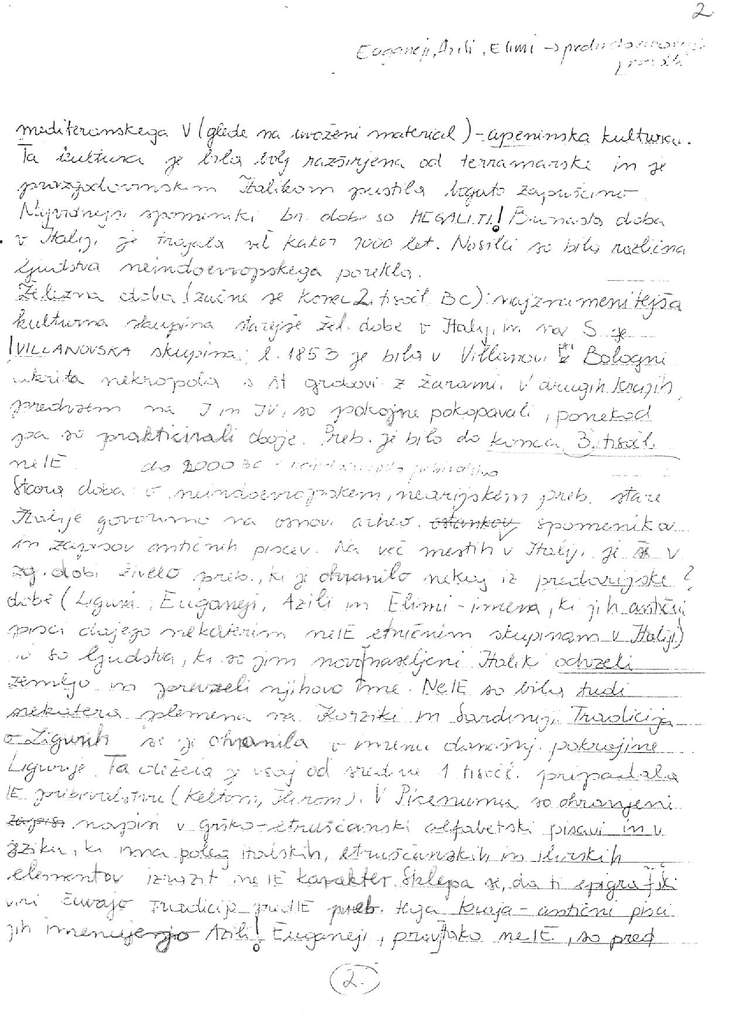 2
Euganeji, Azili, Elimi →
mediteranskega V (glede na uvoženi material) - apeninska kultura.
Ta kultura je bila bolj razširjena od terramarske in je
prazgodovinskim Italikom pustila bogato zapuščino.
Najvidnejši spomeniki br. dobe so MEGALITI! Bronasta doba
v Italiji je trajala več kakor 1000 let. Nosilci so bila različna
ljudstva neindoevropskega porekla.
Železna doba (začne se konec 2. tisočl. BC): najznamenitejša
kulturna skupina starejše žel. dobe v Italiji in na S je
VILLANOVSKA skupina; l. 1853 je bila v Villanovi Bologni
odkrita nekropola s grobovi z žarami. V drugih krajih,
predvsem na J in JV, so pokojne pokopavali, ponekod
pa so prakticirali oboje. Preb. je bilo do konca 3. tisočl.
neIE do 2000 BC
Stara doba: o neindoevropskem, nearijskem preb. stare
Italije govorimo na osnovi arheo. ostankov spomenikov
in zapisov antičnih piscev. Na več mestih v Italiji je v
zg. dobi živelo preb., ki je ohranilo nekaj iz predarijske ?
dobe (Liguri, Euganeji, Azili in Elimi - imena, ki jih antični
pisci dajejo nekaterim neIE etničnim skupinam v Italiji)
so ljudstva, ki so jim novonaseljeni Italiki odvzeli
zemljo in prevzeli njihovo ime. NeIE so bila tudi
nekatera plemena na Korziki in Sardiniji. Tradicija
o Ligurih se je ohranila v imenu današnj. pokrajine
Ligurije. Ta dežela je vsaj od srede 1 tisočl. pripadala
IE prebivalstvu (Keltom, Ilirom). V Picenumu so ohranjeni
zapisi napisi v grško-etruščanski alfabetski pisavi in v
jeziku, ki ima poleg italskih, etruščanskih in ilirskih
elementov izrazit neIE karakter. Sklepa se, da ti epigrafski
viri čuvajo tradicijo predIE preb. tega kraja - antični pisci
jih imenujejo Azili! Euganeji, pravtako neIE, so pred
2.